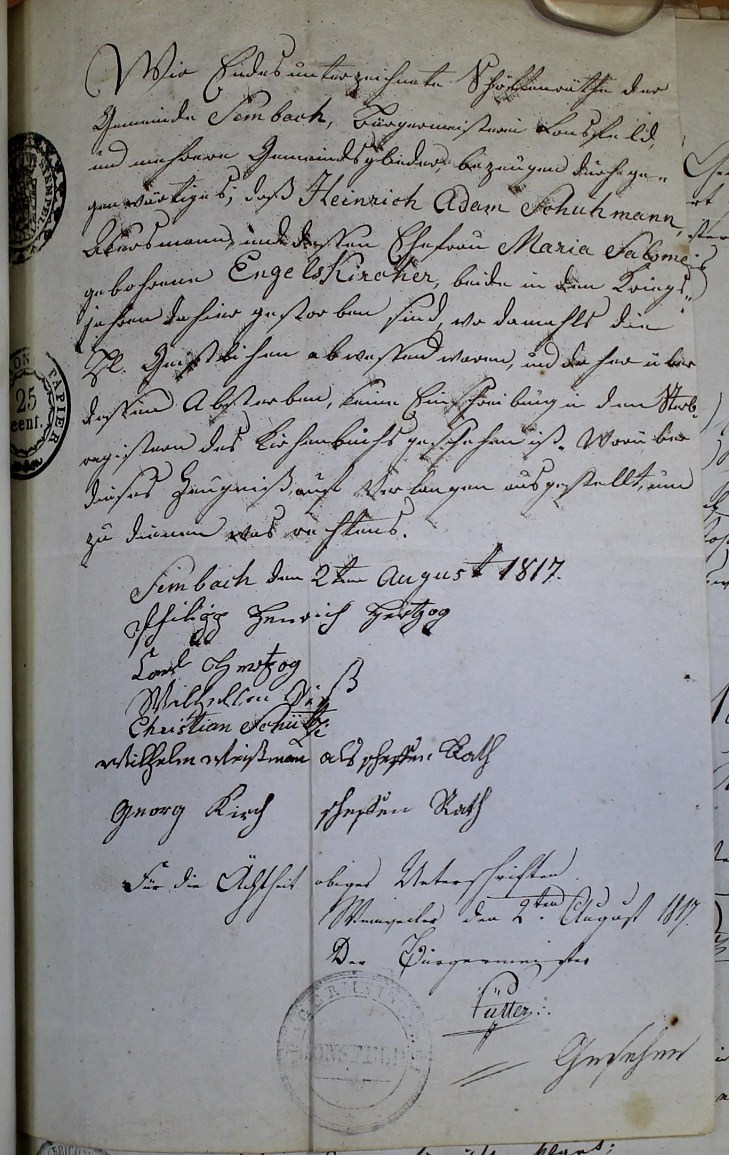 Wir Endes unterzeichnete Schöffenräthe der
Gemeinde Sembach, Bürgermeisterei Lonsfeld,
und mehrere Gemeindsglieder, bezeugen durch ge-
genwärtiges, daß Heinrich Adam Schuhmann,
Akersmann, und dessen Ehefrau Maria Salome
gebohrene Engelskircher, beide in den Kriegs-
jahren dahier gestorben sind, wo damahls die
H. Geistlichen abwessend waren, und daher über
dessen Absterben, keine Einschreibung in den Sterb-
registern des Kirchenbuchs geschehen ist. Worüber
dieses Zeugniß auf Verlangen ausgestellt, um
zu dienen was rechtens.
Sembach den 2ten August 1817.
Philipp Henrich Hertzog
Carl Hertzog
Wilhelm
Christian Schütz
Wilhelm Weißman als scheffen Rath
Georg Kirch scheffen Rath
Für die Ächtheit obiger Unterschriften
den 2ten August 1817.
Der Bürgermeister
Fütter
Gesehen
ON PAPIER
25
cent.
STEMPEL